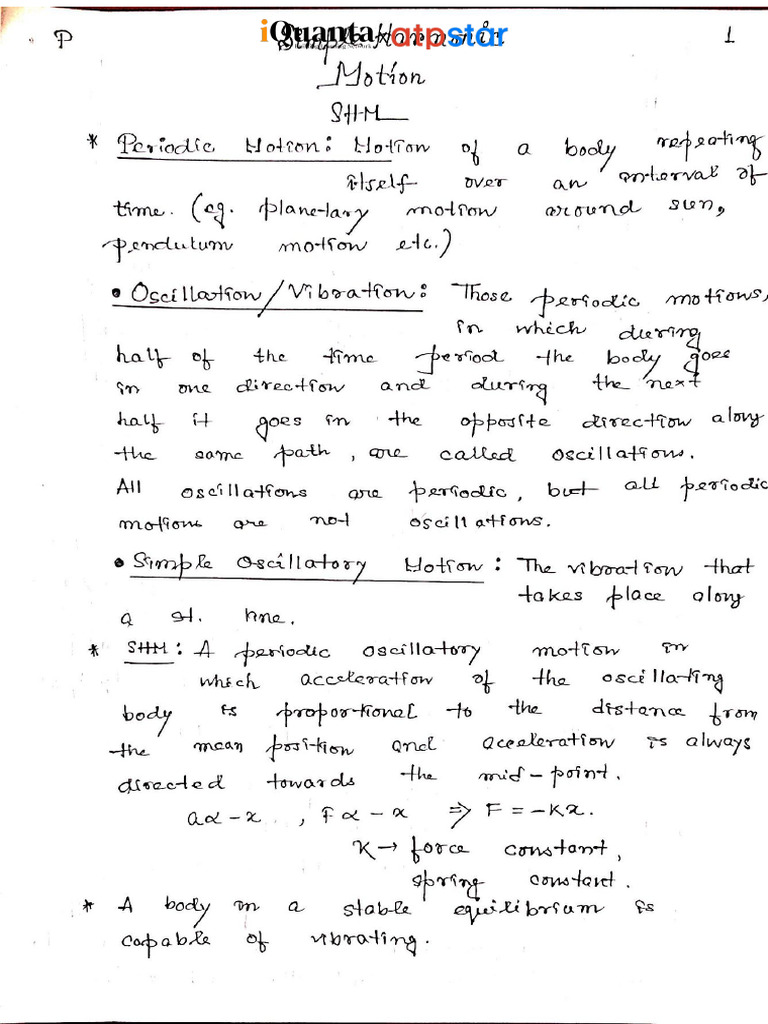 P iQuanta atpstar 1
Simple Harmonic
Motion
SHM
* Periodic Motion: Motion of a body repeating
itself over an interval of
time. (eg. planetary motion around sun,
pendulum motion etc.)
• Oscillation/Vibration: Those periodic motions,
in which during
half of the time period the body goes
in one direction and during the next
half it goes in the opposite direction along
the same path, are called oscillations.
All oscillations are periodic, but all periodic
motions are not oscillations.
• Simple Oscillatory Motion: The vibration that
takes place along
a st. line.
* SHM: A periodic oscillatory motion in
which acceleration of the oscillating
body is proportional to the distance from
the mean position and acceleration is always
directed towards the mid-point.
a∝-x, F∝-x ⇒ F=-Kx.
K→ force constant,
spring constant.
* A body in a stable equilibrium is
capable of vibrating.